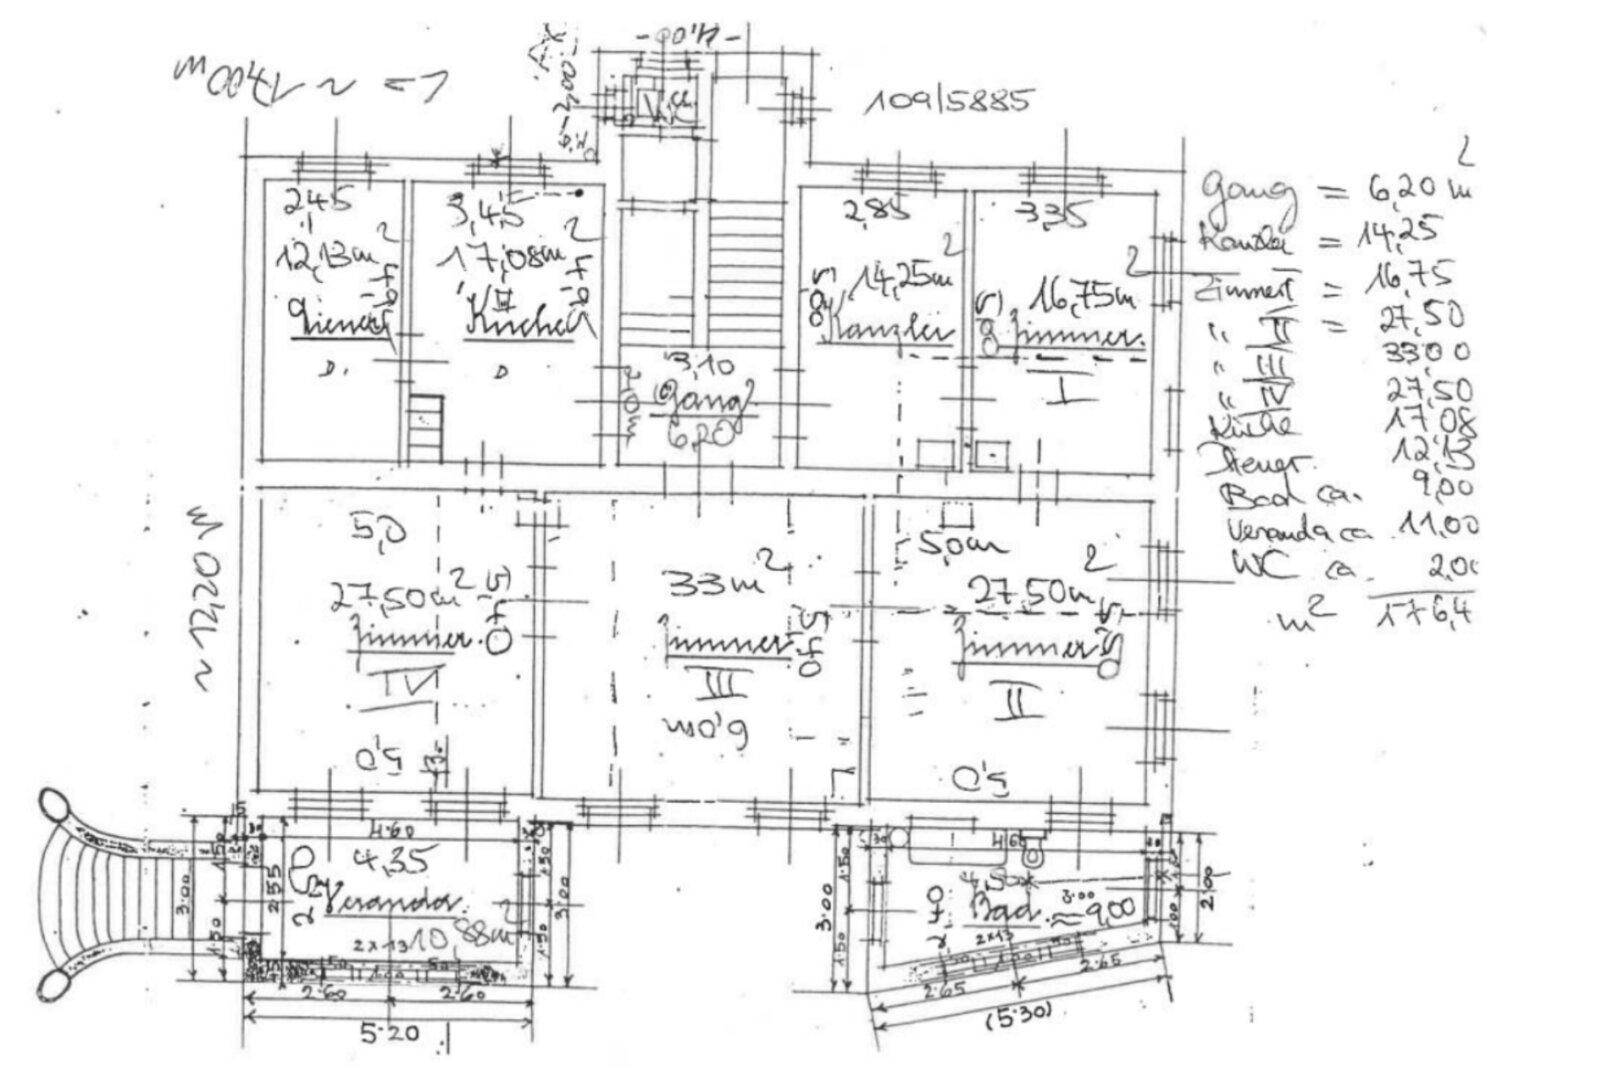 -4,00-
L -> ~ 17,00 m
109/5885
W.C.
245
12,13m²
Diener
D.
3,45
17,08m²
Küche
D
3,10
Gang
6,20
2,0m
2,85
14,25m²
Kanzlei
3,35
16,75m²
Zimmer.
I
Gang = 6,20 m²
Kanzlei = 14,25
Zimmer I = 16,75
" II = 27,50
" III 33,00
" IV 27,50
Küche 17,08
Diener. 12,13
Bad ca. 9,00
Veranda ca. 11,00
WC ca. 2,00
m² 176,4
~ 12,20 m
5,0
27,50m²
Zimmer.
IV
5,0
33m²
Zimmer
III
6,0m
5,0m
27,50m²
Zimmer
II
5,0
4.60
4,35
Veranda.
10,88m²
2x13
2.55
3.00
1.50
1.50
1.50
3.00
1.50
50
1.00
50
2.60
2.60
5.20
30
4.60
4,50
Bad. ≈ 9,00
3.00
2x13
3.00
1.50
1.50
2.00
1.00
50
1.00
50
2.65
2.65
(5.30)